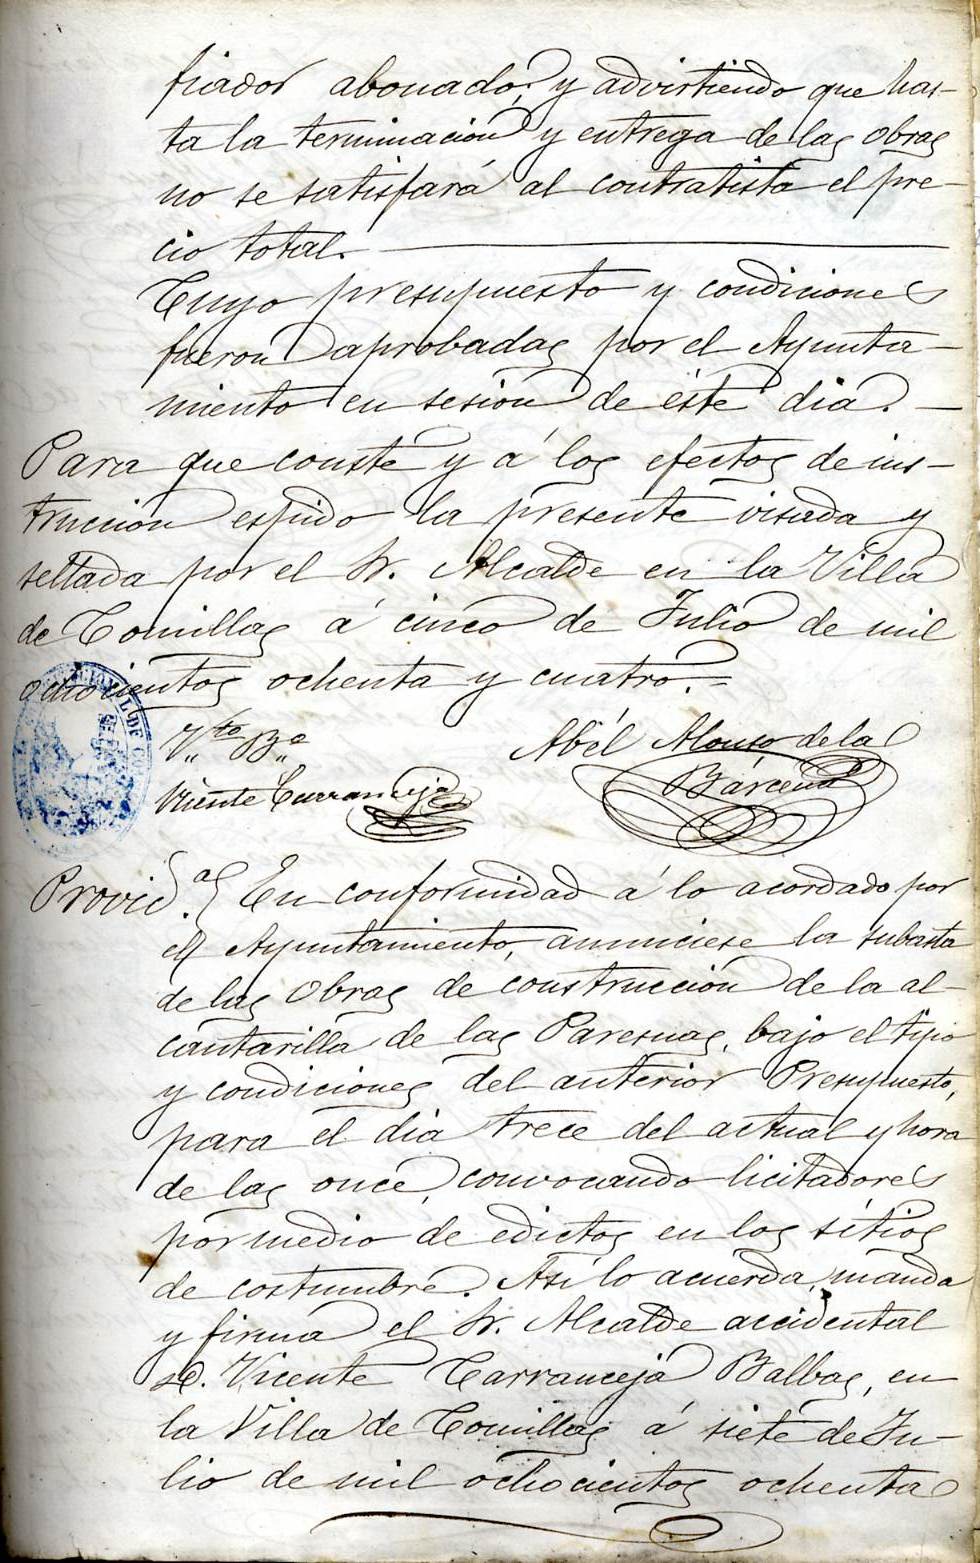 fiador abonado, y advirtiendo que has-
ta la terminación y entrega de las obras
no se satisfará al contratista el pre-
cio total.
Cuyo presupuesto y condiciones
fueron aprobadas por el Ayunta-
miento en sesión de éste dia.
Para que conste y á los efectos de ins-
trucción espido la presente visada y
sellada por el Sr. Alcalde en la Villa
de Comillas á cinco de Julio de mil
ochocientos ochenta y cuatro.
Vto Bo
Abél Alonso de la
Bárcena
Vicente Carranceja
Provid.a En conformidad á lo acordado por
el Ayuntamiento, anunciese la subasta
de las obras de construcción de la al-
cantarilla de las Paresnas, bajo el tipo
y condiciones del anterior Presupuesto,
para el dia trece del actual y hora
de las once, convocando licitadores
por medio de edictos en los sítios
de costumbre. Asi lo acuerda, manda
y firma el Sr. Alcalde accidental
D. Vicente Carranceja Balbas, en
la Villa de Comillas á siete de Ju-
lio de mil ochocientos ochenta